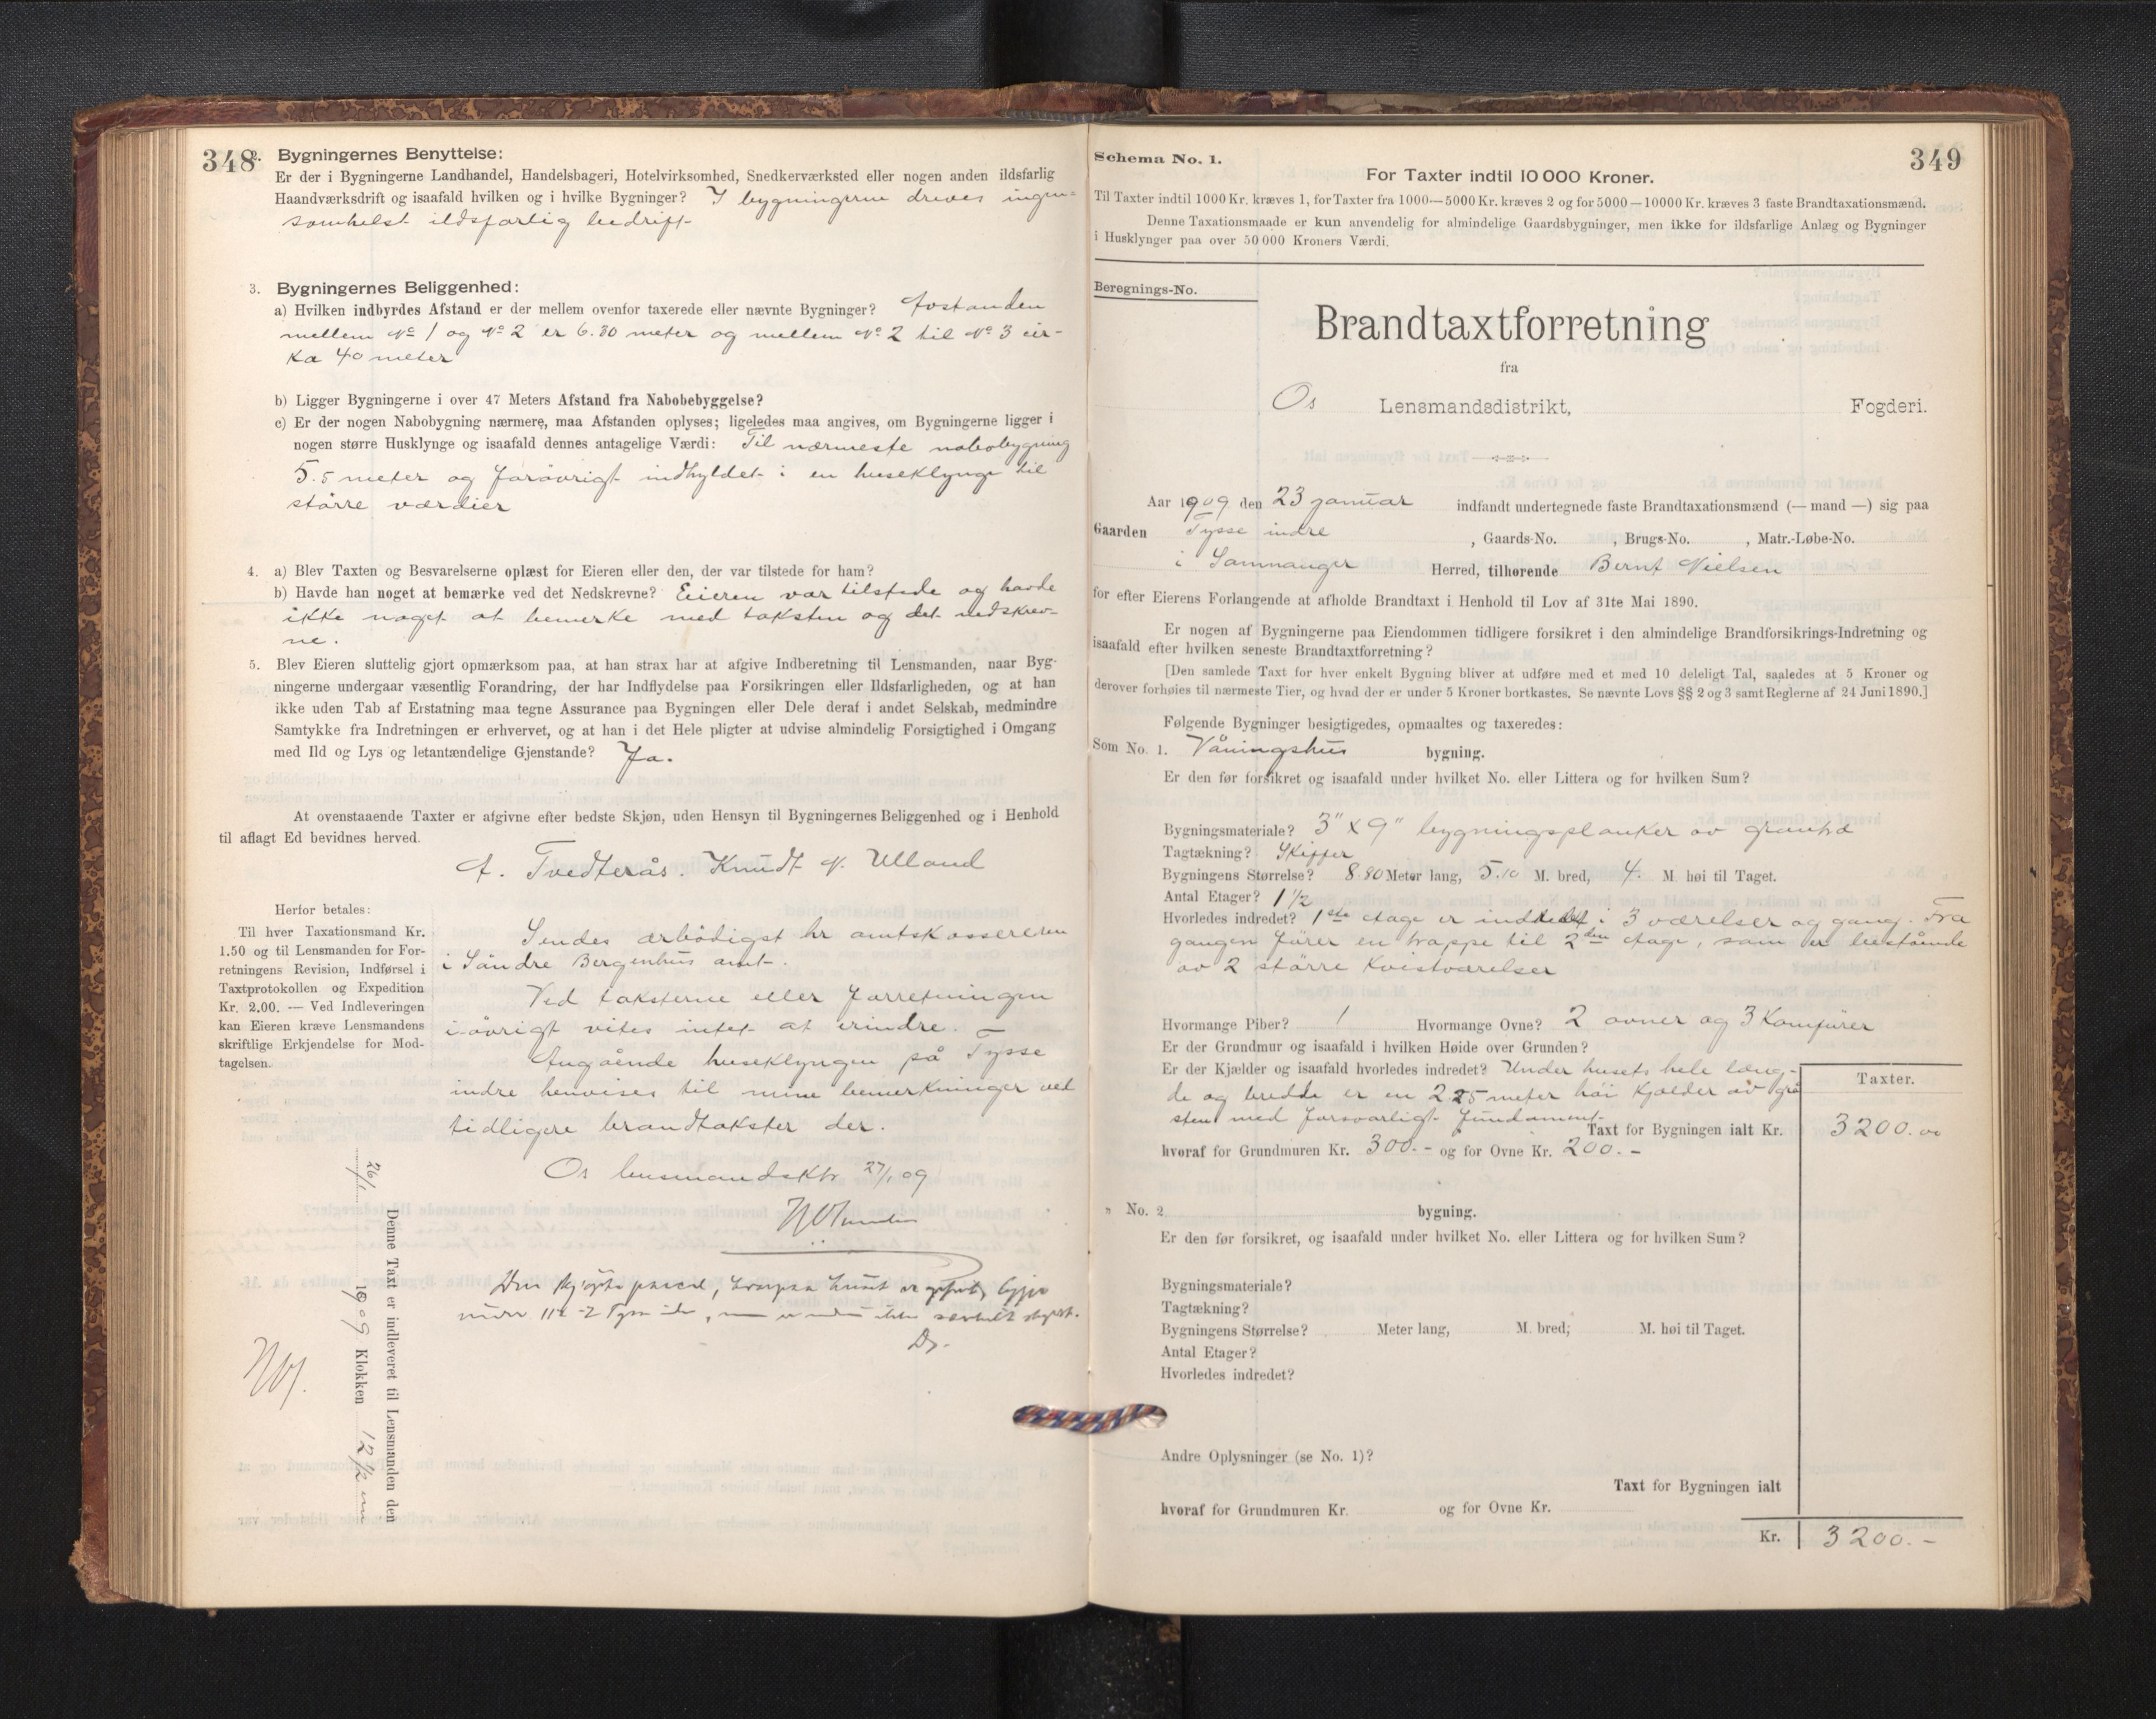 348
2. Bygningernes Benyttelse:
Er der i Bygningerne Landhandel, Handelsbageri, Hotelvirksomhed, Snedkerværksted eller nogen anden ildsfarlig
Haandværksdrift og isaafald hvilken og i hvilke Bygninger? I bygningerne drives ingen-
somhelst ildsfarlig bedrift
3. Bygningernes Beliggenhed:
a) Hvilken indbyrdes Afstand er der mellem ovenfor taxerede eller nævnte Bygninger? Avstanden
mellem No 1 og No 2 er 6.80 meter og mellem No 2 til No 3 cir-
ka 40 meter
b) Ligger Bygningerne i over 47 Meters Afstand fra Nabobebyggelse?
c) Er der nogen Nabobygning nærmere, maa Afstanden oplyses; ligeledes maa angives, om Bygningerne ligger i
nogen større Husklynge og isaafald dennes antagelige Værdi: Til nærmeste nabobygning
5.5 meter og forøvrigt indhyldet i en huseklynge til
større værdier
4. a) Blev Taxten og Besvarelserne oplæst for Eieren eller den, der var tilstede for ham?
b) Havde han noget at bemærke ved det Nedskrevne? Eieren var tilstede og havde
ikke noget at bemerke med taksten og det nedskrev-
ne.
5. Blev Eieren sluttelig gjort opmærksom paa, at han strax har at afgive Indberetning til Lensmanden, naar Byg-
ningerne undergaar væsentlig Forandring, der har Indflydelse paa Forsikringen eller Ildsfarligheden, og at han
ikke uden Tab af Erstatning maa tegne Assurance paa Bygningen eller Dele deraf i andet Selskab, medmindre
Samtykke fra Indretningen er erhvervet, og at han i det Hele pligter at udvise almindelig Forsigtighed i Omgang
med Ild og Lys og letantændelige Gjenstande? Ja.
At ovenstaaende Taxter er afgivne efter bedste Skjøn, uden Hensyn til Bygningernes Beliggenhed og i Henhold
til aflagt Ed bevidnes herved.
A. Tvedterås. Knudt N. Ulland
Herfor betales:
Til hver Taxationsmand Kr.
1.50 og til Lensmanden for For-
retningens Revision, Indførsel i
Taxtprotokollen og Expedition
Kr. 2.00. — Ved Indleveringen
kan Eieren kræve Lensmandens
skriftlige Erkjendelse for Mod-
tagelsen.
Sendes ærbødigst hr amtskassereren
i Søndre Bergenhus amt.
Ved taksterne eller forretningen
iøvrigt vites intet at erindre. –
Angående huseklyngen på Tysse
indre henvises til mine bemerkninger ved
tidligere brandtakster der.
Os lensmandsktr 27/1 09
Den kjøpte parcel, hvorpaa huset er opført, ligger
under 112 -2 Tysse idr,
Ds.
Denne Taxt er indleveret til Lensmanden den
26/1 1909 Klokken 12 1/2 em
349
Schema No. 1.
For Taxter indtil 10 000 Kroner.
Til Taxter indtil 1000 Kr. kræves 1, for Taxter fra 1000—5000 Kr. kræves 2 og for 5000—10000 Kr. kræves 3 faste Brandtaxationsmænd.
Denne Taxationsmaade er kun anvendelig for almindelige Gaardsbygninger, men ikke for ildsfarlige Anlæg og Bygninger
i Husklynger paa over 50 000 Kroners Værdi.
Beregnings-No.
Brandtaxtforretning
fra
Os Lensmandsdistrikt, Fogderi.
Aar 1909 den 23 januar indfandt undertegnede faste Brandtaxationsmænd (— mand —) sig paa
Gaarden Tysse indre, Gaards-No. , Brugs-No. , Matr.-Løbe-No.
i Samnanger Herred, tilhørende Bernt Nielsen
for efter Eierens Forlangende at afholde Brandtaxt i Henhold til Lov af 31te Mai 1890.
Er nogen af Bygningerne paa Eiendommen tidligere forsikret i den almindelige Brandforsikrings-Indretning og
isaafald efter hvilken seneste Brandtaxtforretning?
[Den samlede Taxt for hver enkelt Bygning bliver at udføre med et med 10 deleligt Tal, saaledes at 5 Kroner og
derover forhøies til nærmeste Tier, og hvad der er under 5 Kroner bortkastes. Se nævnte Lovs §§ 2 og 3 samt Reglerne af 24 Juni 1890.]
Følgende Bygninger besigtigedes, opmaaltes og taxeredes:
Som No. 1. Våningshus bygning.
Er den før forsikret og isaafald under hvilket No. eller Littera og for hvilken Sum?
Bygningsmateriale? 3" x 9" bygningsplanker av grantræ
Tagtækning? Skiffer
Bygningens Størrelse? 8.80 Meter lang, 5.10 M. bred, 4. M. høi til Taget.
Antal Etager? 1 1/2
Hvorledes indredet? 1ste etage er inddelt i 3 værelser og gang. Fra
gangen fører en trappe til 2den etage, som er bestående
av 2 større kvistværelser
Hvormange Piber? 1 Hvormange Ovne? 2 ovner og 3 Komfurer
Er der Grundmur og isaafald i hvilken Høide over Grunden?
Er der Kjælder og isaafald hvorledes indredet? Under husets hele læng-
de og bredde er en 2.25 meter høi kjælder av grå
sten med forsvarligt fundament
Taxter.
Taxt for Bygningen ialt Kr. 3200.00
hvoraf for Grundmuren Kr. 300.- og for Ovne Kr. 200.-
No. 2 bygning.
Er den før forsikret, og isaafald under hvilket No. eller Littera og for hvilken Sum?
Bygningsmateriale?
Tagtækning?
Bygningens Størrelse? Meter lang, M. bred, M. høi til Taget.
Antal Etager?
Hvorledes indredet?
Andre Oplysninger (se No. 1)?
Taxt for Bygningen ialt
hvoraf for Grundmuren Kr. og for Ovne Kr.
Kr. 3200.-